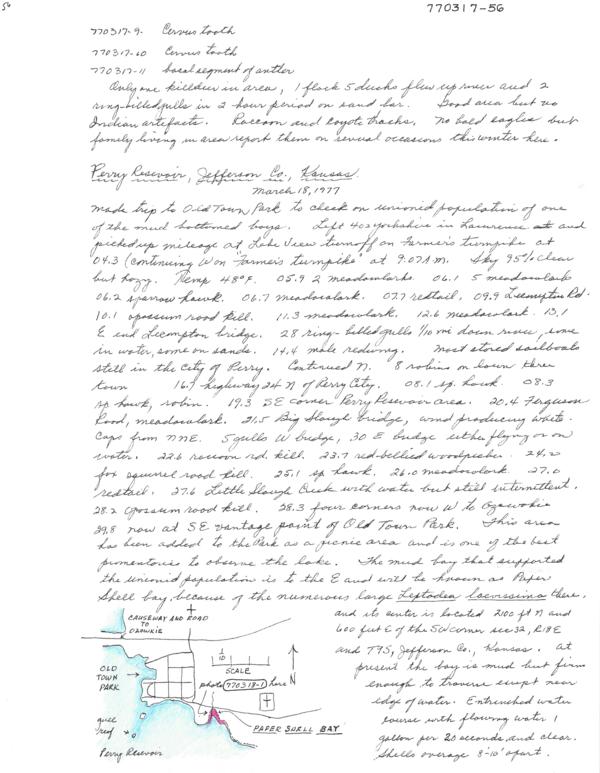 56
770317-56
770317-9. Cervus tooth
770317-10 Cervus tooth
770317-11 basal segment of antler
Only one killdeer in area, 1 flock 5 ducks flew up river and 2
ring-billed gulls in 2 hour period on sand bar. Good area but no
Indian artifacts. Raccoon and coyote tracks. No bald eagles but
family living in area report them on several occasions this winter here.
Perry Resevoir, Jefferson Co., Kansas.
March 18, 1977
made trip to Old Town Park to check on unionid population of one
of the mud bottomed bays. Left 402 Yorkshire in Lawrence and
picked up mileage at Lake View turnoff on Farmer's turnpike at
04.3 (continuing W on Farmer's turnpike at 9:07 A.M. Sky 95% clear
but hazy. Temp 48°F. 05.9 2 meadowlarks. 06.1 5 meadowlark
06.2 sparrow hawk. 06.7 meadowlark. 07.7 redtail. 09.9 Lecompton Rd.
10.1 opossum road kill. 11.3 meadowlark. 12.6 meadowlark. 13.1
E end Lecompton bridge. 28 ring-billed gulls 1/10 mi down river, some
in water, some on sands. 14.4 male redwing. Most stored sailboats
still in the City of Perry. Continued N. 8 robins on lawn three
town 16.7 highway 24 N of Perry City. 08.1 sp. hawk. 08.3
sp hawk, robin. 19.3 SE corner Perry Resevoir area. 20.4 Ferguson
Road, meadowlark. 21.5 Big Slough bridge, wind producing white
caps from NNE. 5 gulls W bridge, 30 E bridge either flying or on
water. 22.6 raccoon rd. kill. 23.7 red-bellied woodpecker. 24.2
fox squirrel road kill. 25.1 sp hawk. 26.0 meadowlark. 27.0
redtail. 27.6 Little Slough Creek with water but still intermittent.
28.2 opossum road kill. 28.3 four corners now W to Ozawkie
29.8 now at SE vantage point of Old Town Park. This area
has been added to the Park as a picnic area and is one of the best
promontories to observe the lake. The mud bay that supported
the unionid population is to the E and will be known as Paper
Shell bay, because of the numerous large Leptodea laevissima there,
and its center is located 2100 ft N and
600 feet E of the SW corner sec 32, R18E
and T9S, Jefferson Co., Kansas. At
present the bay is mud but firm
enough to traverse except near
edge of water. Entrenched water
course with flowing water 1
gallon per 20 seconds, and clear.
Shells average 8'-10' apart.
CAUSEWAY AND ROAD
TO
OZAWKIE
OLD
TOWN
PARK
1/10
SCALE
N
photo 770318-1 here
PAPER SHELL BAY
gull
reef
Perry Resevoir